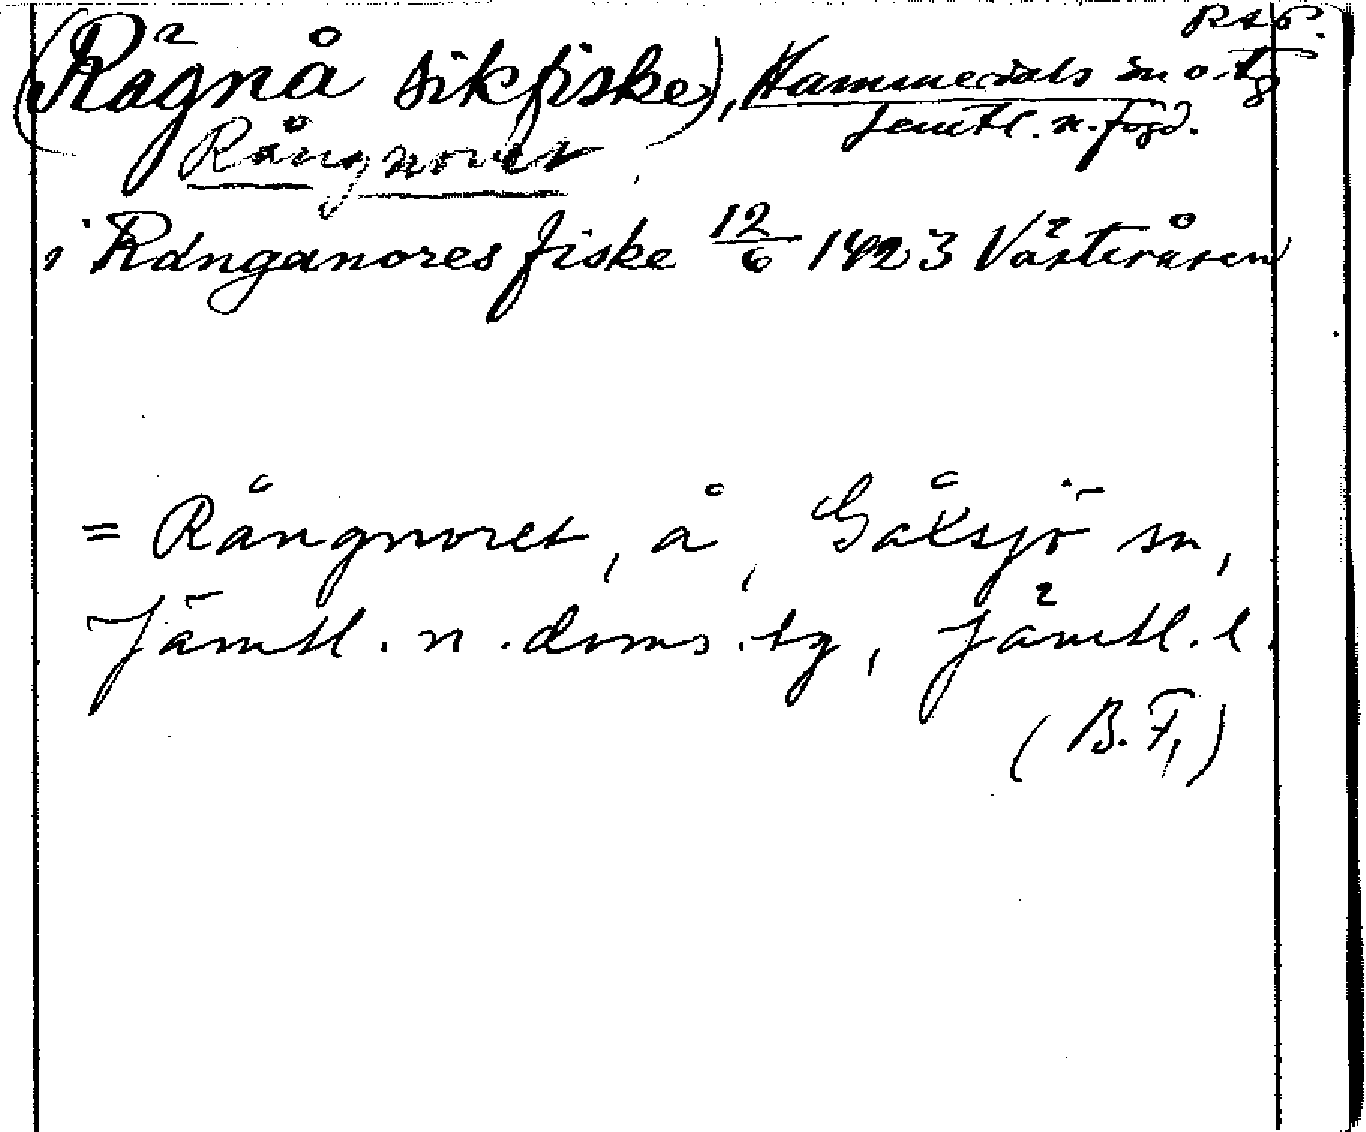 RAP.
(Rägnå sikfiske), Hammerdals sn o. tg
Jemtl. n. fögd.
Rångnoret
i Rånganores fiske 12/6 1423 Västeråsen
= Rångnoret, å, Gåxsjö sn,
Jämtl. n. doms. tg, Jämtl. l.
(B. F.)